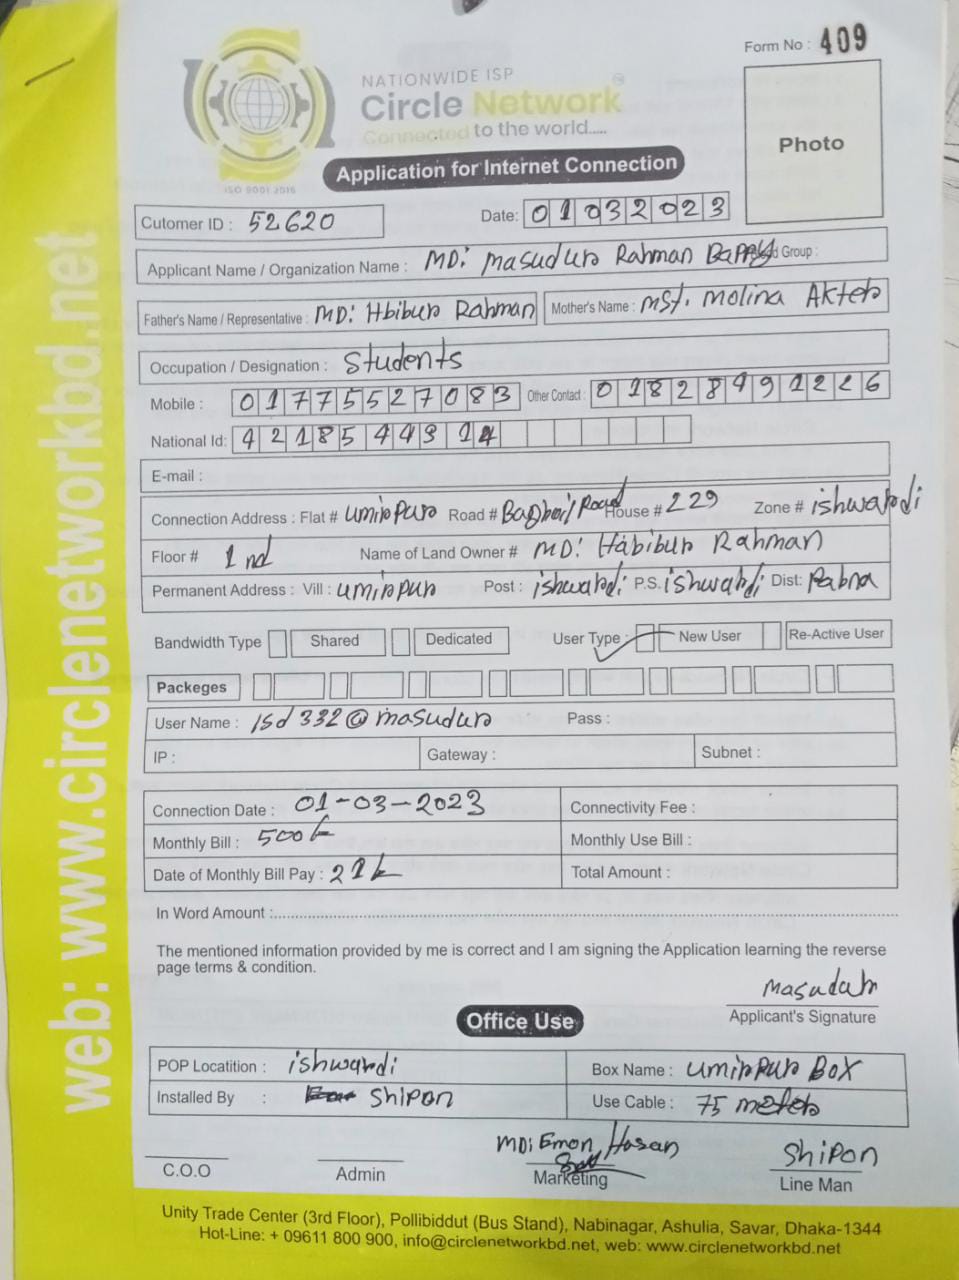 Form No : 409
NATIONWIDE ISP
Circle Network
Connected to the world.....
ISO 9001 2015
Photo
Application for Internet Connection
Cutomer ID : 52620
Date: 01032023
Applicant Name / Organization Name : MD: Masudur Rahman Bappy Group :
Father's Name / Representative : MD: Hbibur Rahman
Mother's Name : Mst. Molina Akter
Occupation / Designation : Students
Mobile : 01775527083 Other Contact : 01828491226
National Id: 4218544914
E-mail :
Connection Address : Flat # umirpur Road # Bagbail Road House # 229 Zone # ishwardi
Floor # 1 nd Name of Land Owner # MD: Habibur Rahman
Permanent Address : Vill : umirpur Post : ishwardi P.S. ishwardi Dist: Pabna
Bandwidth Type Shared Dedicated User Type : New User Re-Active User
Packeges
User Name : isd332@masudur Pass :
IP : Gateway : Subnet :
Connection Date : 01-03-2023 Connectivity Fee :
Monthly Bill : 500 Monthly Use Bill :
Date of Monthly Bill Pay : Total Amount :
In Word Amount :
The mentioned information provided by me is correct and I am signing the Application learning the reverse
page terms & condition.
Masudur
Applicant's Signature
Office Use
POP Locatition : ishwardi Box Name : umirpur Box
Installed By : Shipon Use Cable : 75 meter
MD: Emon Hasan
Shipon
C.O.O Admin Marketing Line Man
Unity Trade Center (3rd Floor), Pollibiddut (Bus Stand), Nabinagar, Ashulia, Savar, Dhaka-1344
Hot-Line: + 09611 800 900, info@circlenetworkbd.net, web: www.circlenetworkbd.net
web: www.circlenetworkbd.net